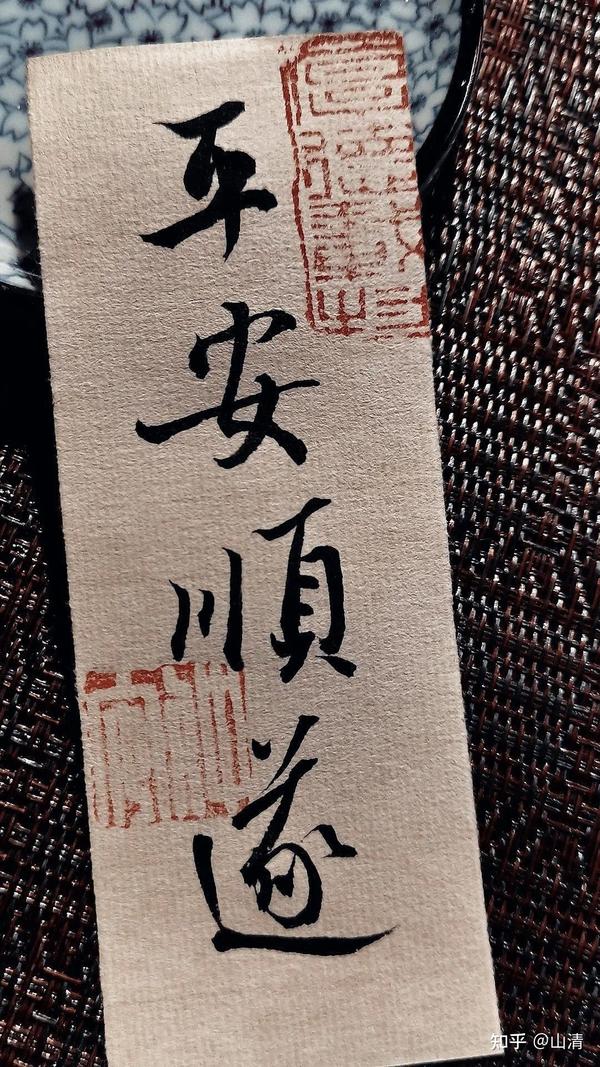 平安順遂
知乎 @山清